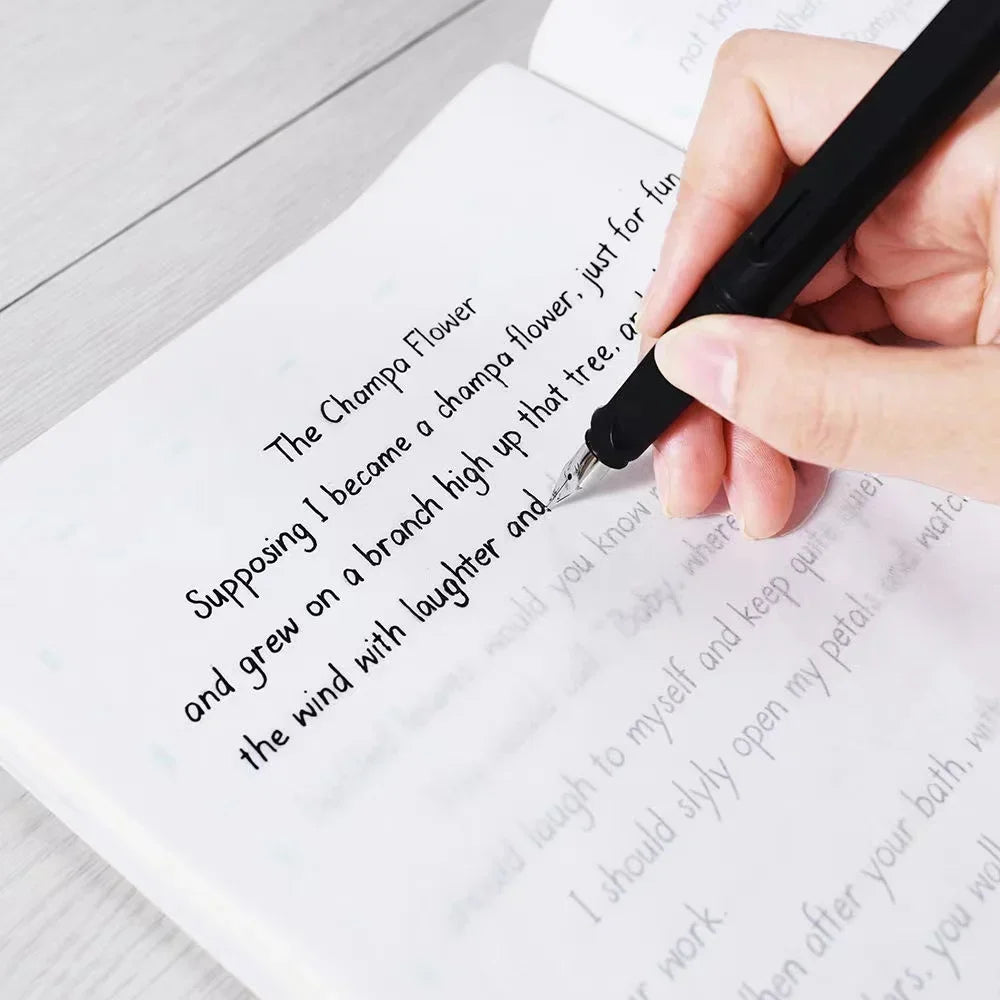 not know
The Champa Flower
Supposing I became a champa flower, just for fun,
and grew on a branch high up that tree, and
the wind with laughter and
would you know
Baby, where
laugh to myself and keep quite quiet
I should slyly open my petals and watch
your work.
when after your bath, with
you walk